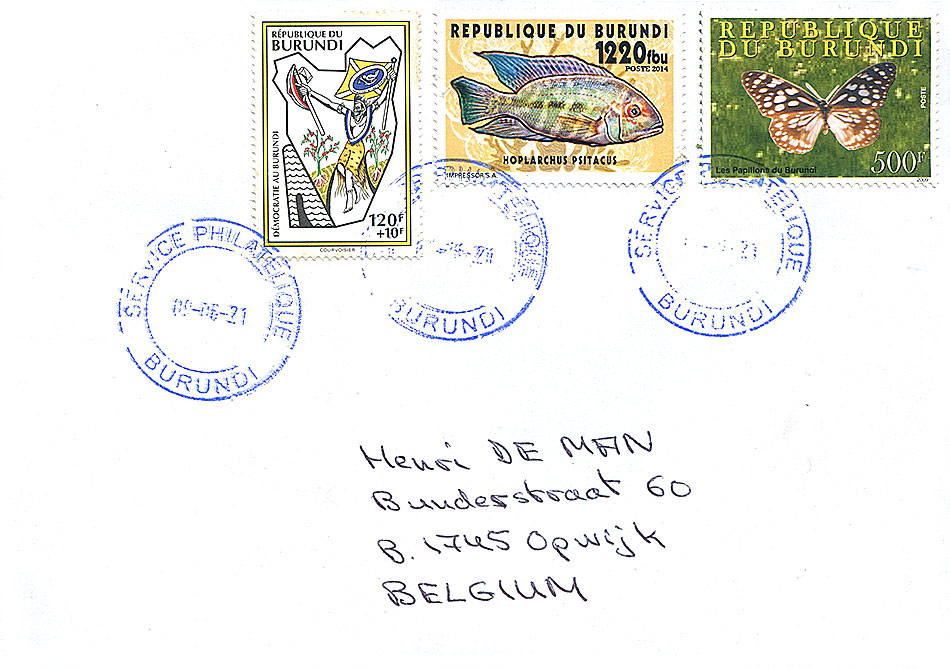 RÉPUBLIQUE DU
BURUNDI
DÉMOCRATIE AU BURUNDI
120F
+10F
COURVOISIER
REPUBLIQUE DU BURUNDI
1220fbu
POSTE 2014
HOPLARCHUS PSITACUS
IMPRESSOR S.A.
REPUBLIQUE
DU BURUNDI
POSTE
500F
Les Papillons du Burundi
2009
SERVICE PHILATELIQUE
09-06-21
BURUNDI
BURUNDI
SERVICE PHILATELIQUE
BURUNDI
Henri DE MAN
Bunderstraat 60
B. 1745 Opwijk
BELGIUM